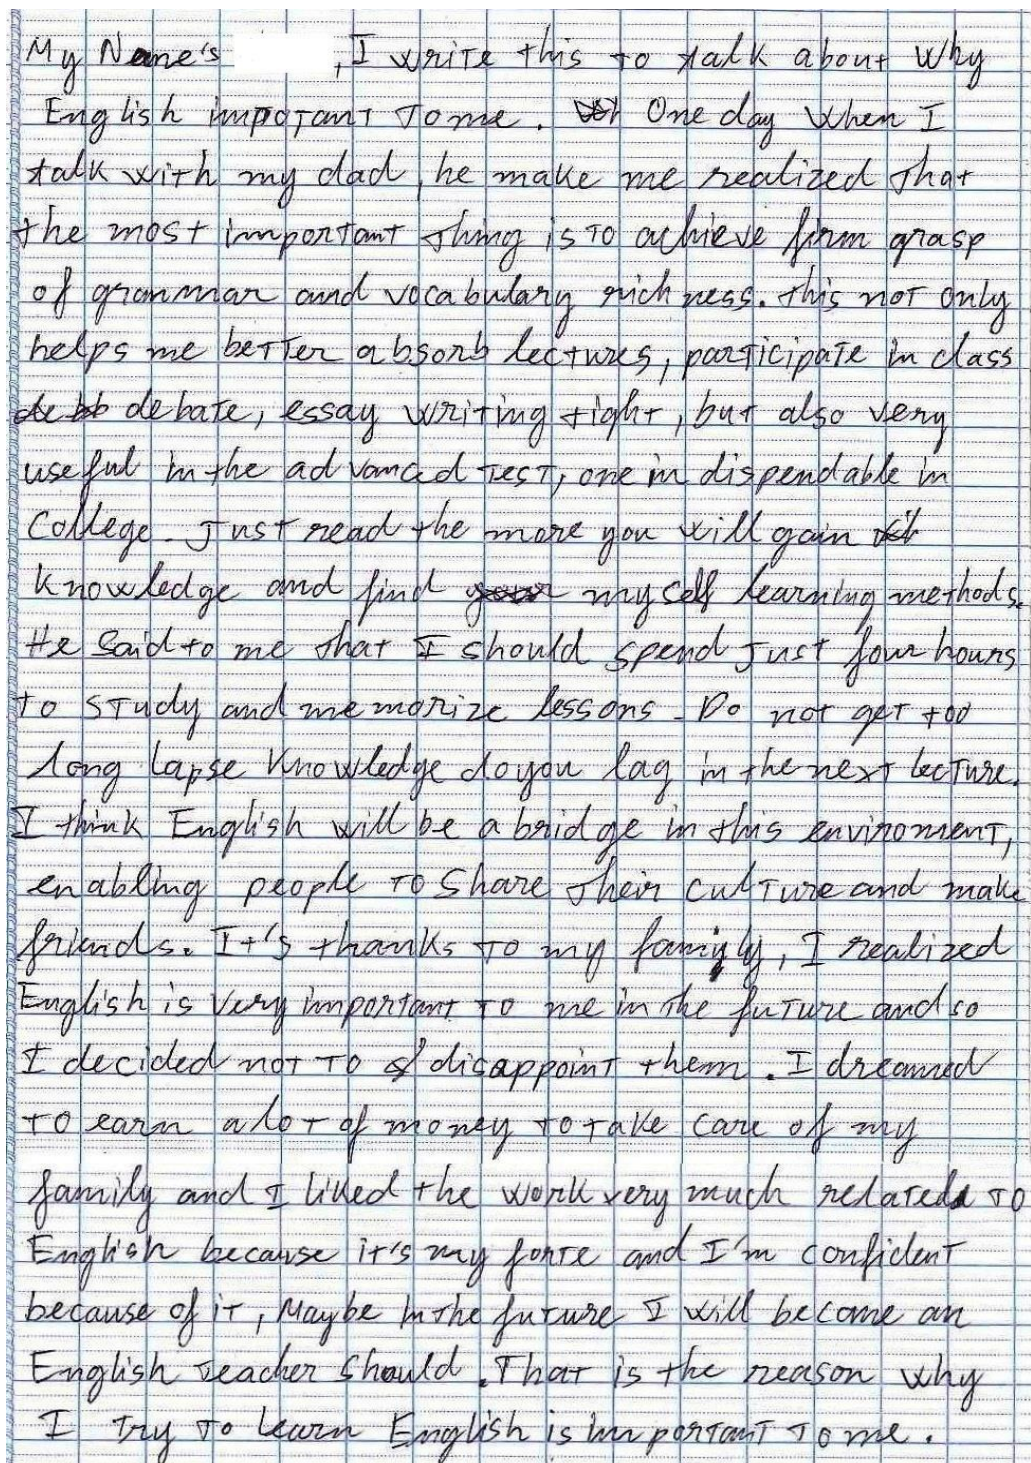 My Name's , I write this to talk about why
English important to me. One day when I
talk with my dad, he make me realized that
the most important thing is to achieve firm grasp
of grammar and vocabulary rich ness. this not only
helps me better absorb lectures, participate in class
debate, essay writing tight, but also very
useful in the advanced test, one in dispendable in
College. Just read the more you will gain
knowledge and find myself learning methods.
He said to me that I should spend just four hours
to study and memorize lessons. Do not get too
long lapse knowledge do you lag in the next lecture.
I think English will be a bridge in this enviroment,
enabling people to share their culture and make
friends. It's thanks to my family, I realized
English is very important to me in the future and so
I decided not to disappoint them. I dreamed
to earn a lot of money to take care of my
family and I liked the work very much related to
English because it's my forte and I'm confident
because of it, Maybe in the future I will become an
English teacher should. That is the reason why
I try to learn English is important to me.